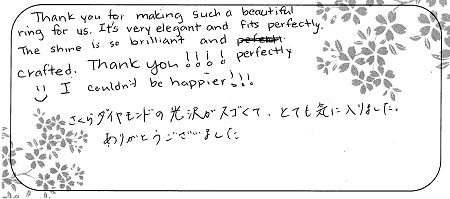 Thank you for making such a beautiful
ring for us. It's very elegant and fits perfectly.
The shine is so brilliant and perfectly
crafted. Thank you!!!!
I couldn't be happier!!!
さくらダイヤモンドの光沢がスゴくて、とても気に入りました。
ありがとうございました